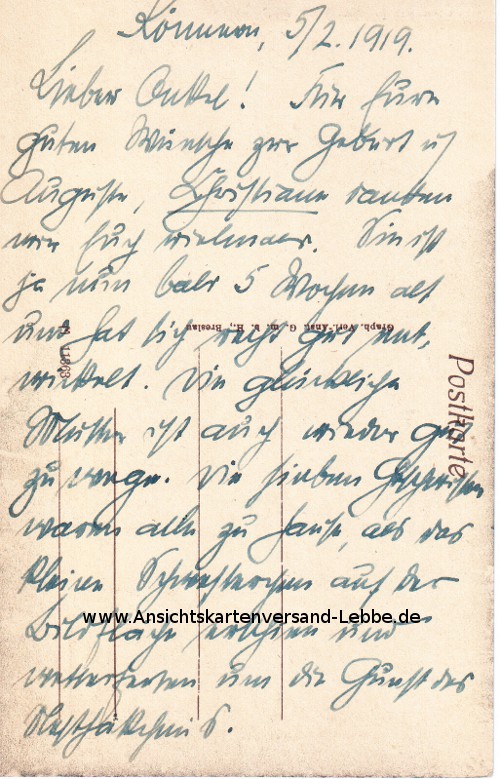 Könnern, 5/2.1919.
Lieber Onkel! Für Eure
guten Wünsche zur Geburt uns.
Auguste, Christiane danken
wir Euch vielmals. Sie ist
ja nun bald 5 Wochen alt
und hat sich recht gut ent,
wickelt. Die glückliche
Mutter ist auch wieder gut
zu wege. Die sieben Geschwister
waren alle zu Hause, als das
kleine Schwesterchen auf der
Bildfläche erschien und
wetteiferten um die Gunst des
Nesthäkchens.
Graph. Verl.-Anst. G. m. b. H., Breslau
Postkarte
www.Ansichtskartenversand-Lebbe.de